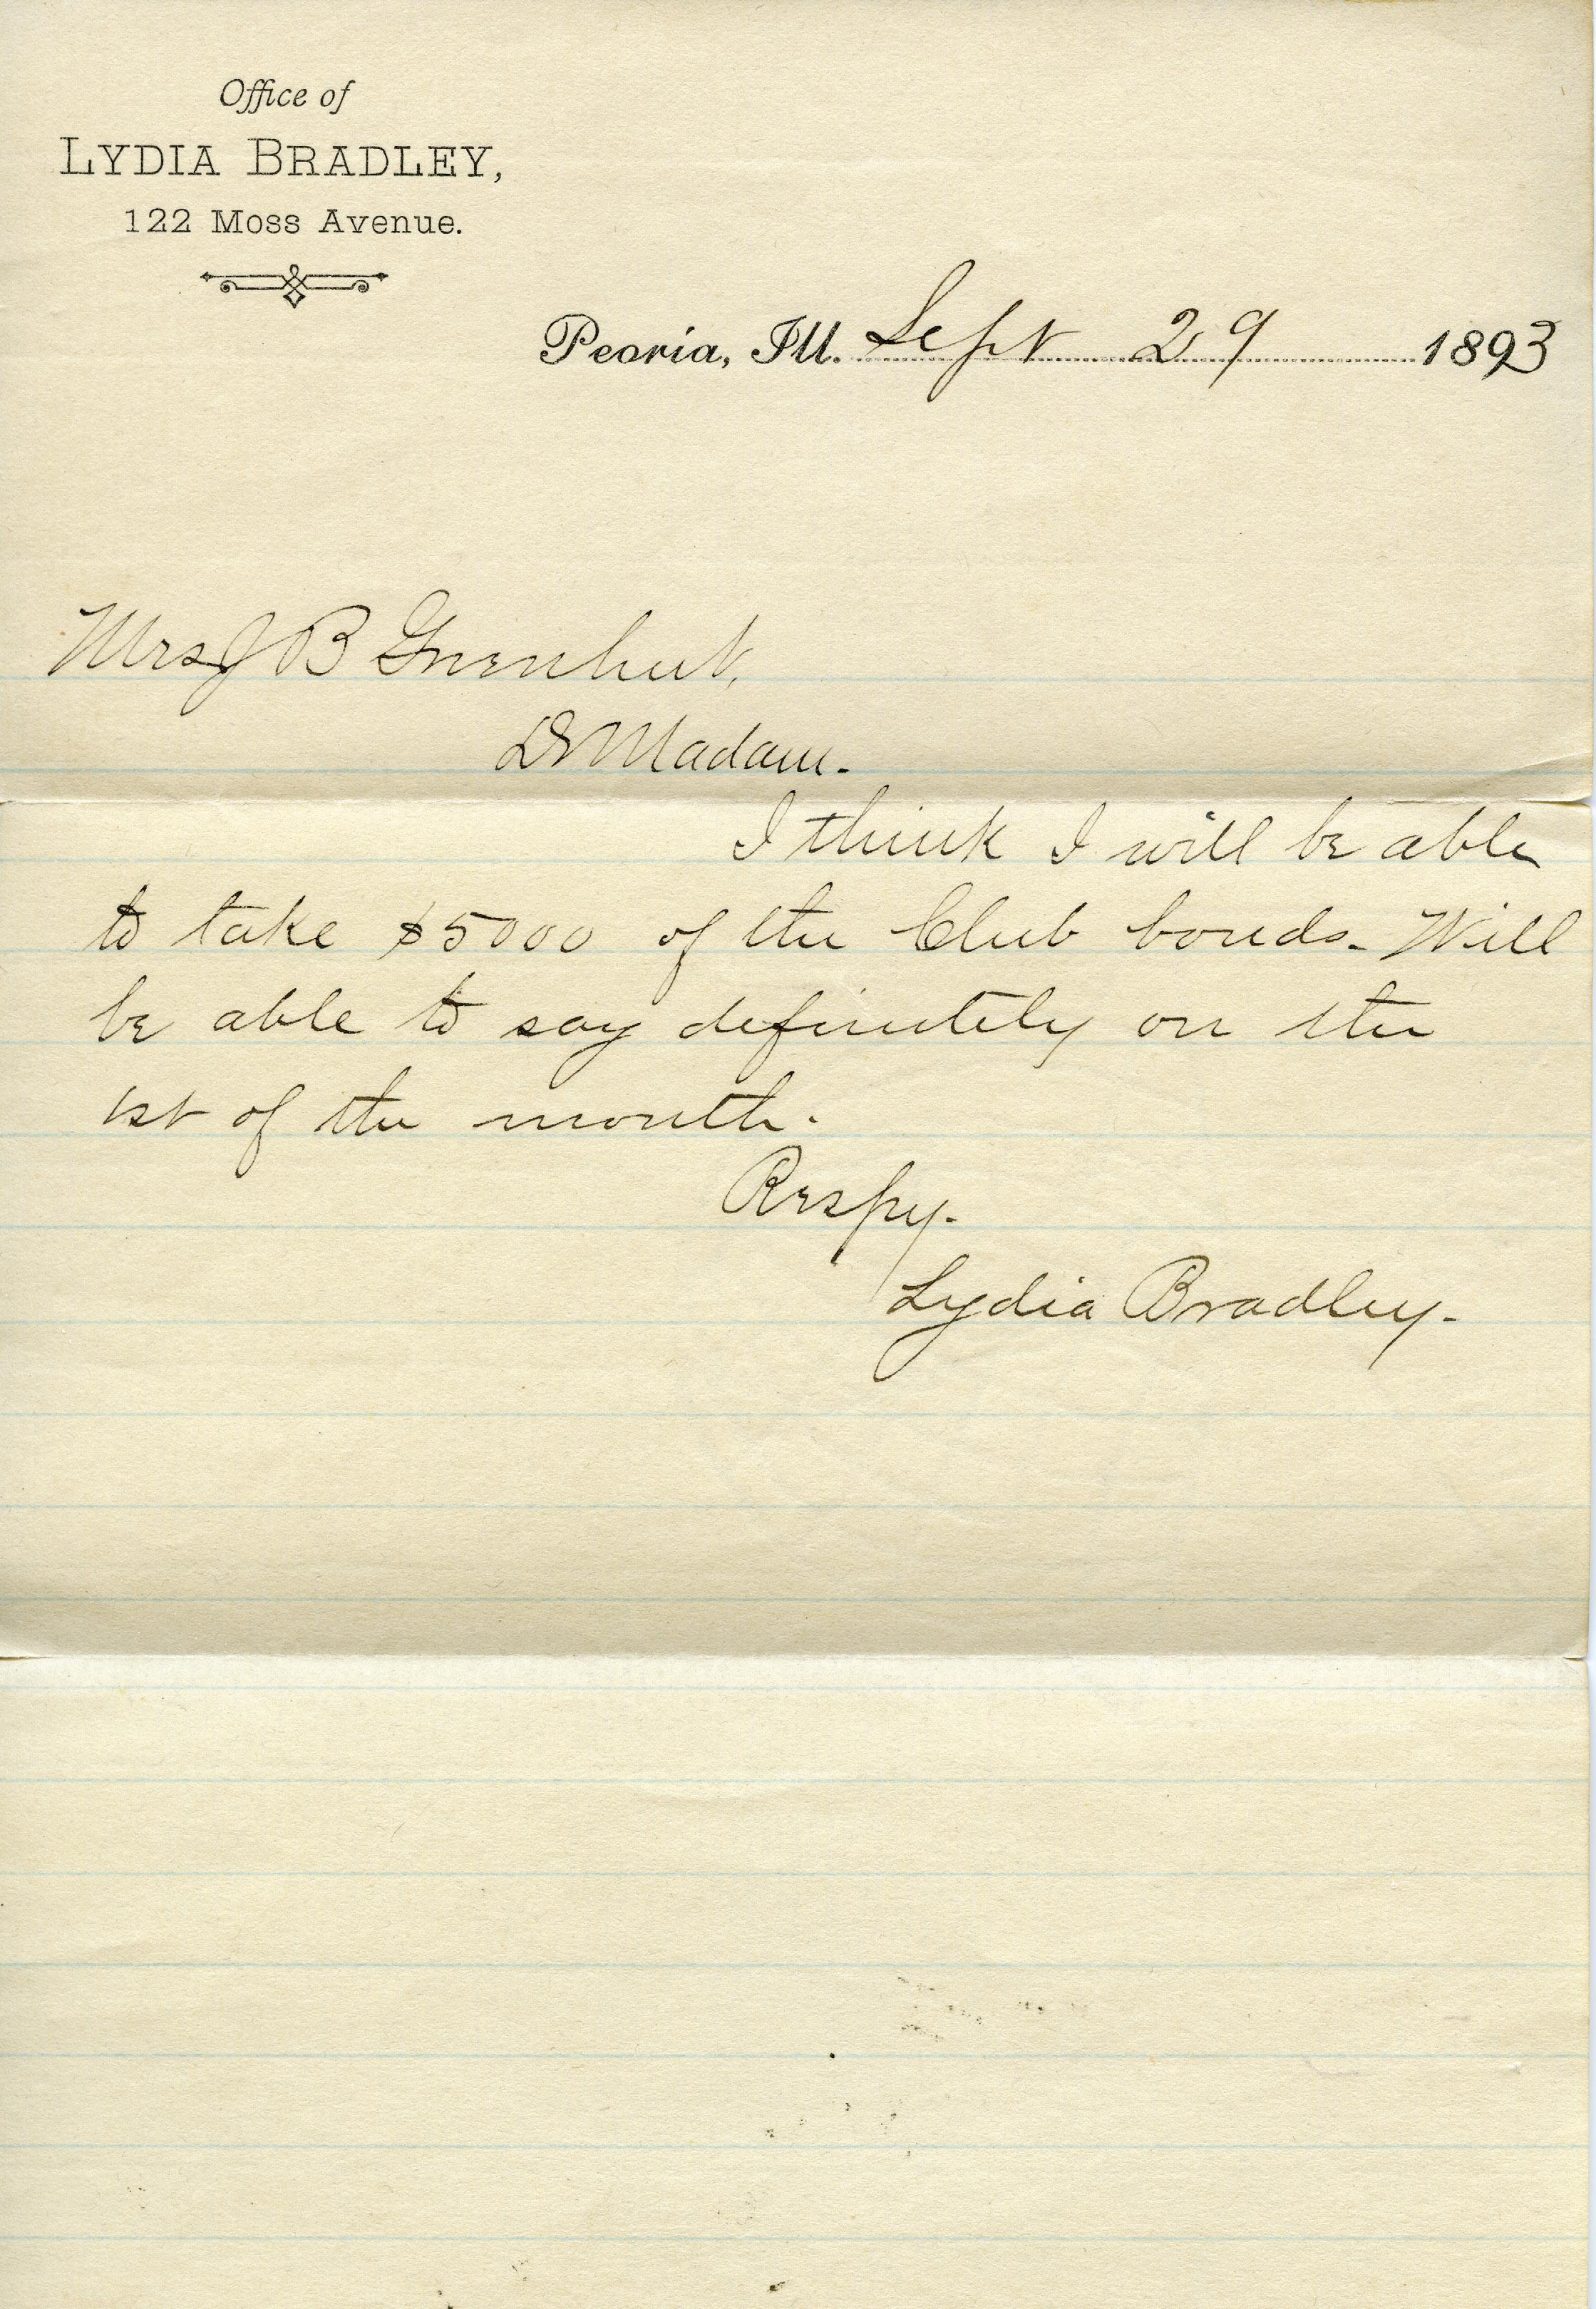 Office of
LYDIA BRADLEY,
122 Moss Avenue.
Peoria, Ill. Sept 29 1893
Mrs J B Greenhut,
Dr Madam.
I think I will be able
to take $5000 of the Club bonds. Will
be able to say definitely on the
1st of the month.
Respy.
Lydia Bradley.